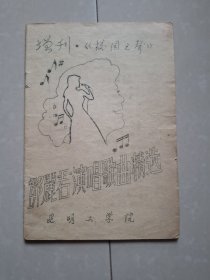 增刊·《校园之声》
邓丽君演唱歌曲精选
昆明工学院